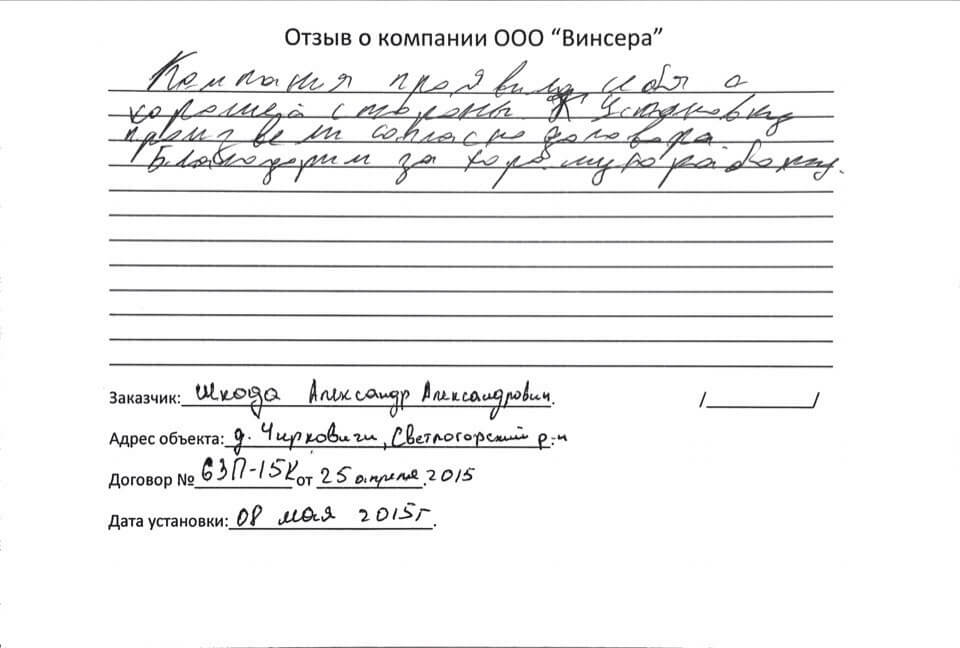 Отзыв о компании ООО “Винсера”
Компания проявила себя с
хорошей стороны Установку
произвели согласно договора
Благодарим за хорошую работу.
Заказчик: Шкода Александр Александрович. / /
Адрес объекта: д. Чирковичи, Светлогорский р-н
Договор № 63П-15К от 25 апреля 2015
Дата установки: 08 мая 2015г.